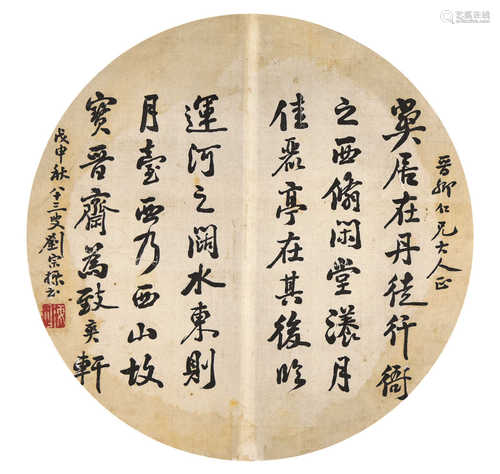 晉卿仁兄大人正
弊居在丹徒行衙
之西翛閑堂漾月
佳麗亭在其後臨
運河之闊水東則
月臺西乃西山故
寶晉齋為致爽軒
戊申秋八十三叟劉宗標書